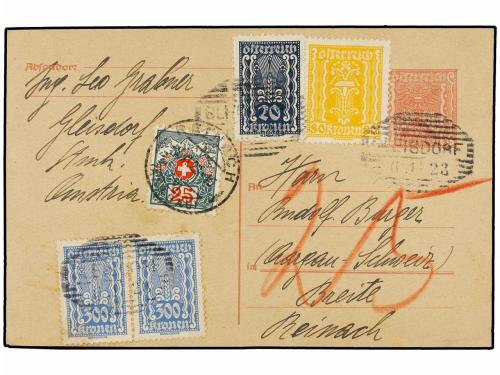 Absender:
Ing. Leo Grabner
Gleisdorf
Stmk.
Austria
österreich
20
kronen
österreich
80 kronen
österreich
GLEISDORF
6.11.23
25
300
kronen
300
kronen
An
Herrn
Rudolf Burger
(Aargau-Schweiz)
in
Breite
Reinach
25